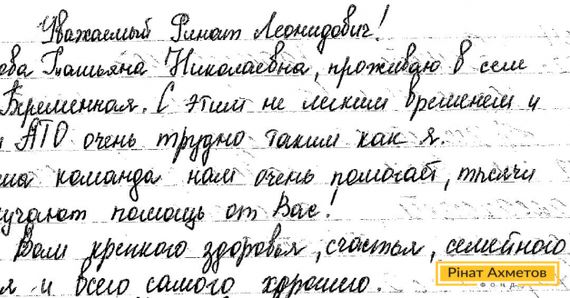 Уважаемый Ринат Леонидович!
ева Татьяна Николаевна, проживаю в селе
Беременная. С этим не легким временем и
АТО очень трудно таким как я.
ша команда нам очень помогает, тысячи
учают помощь от Вас!
Вам крепкого здоровья, счастья, семейного
я и всего самого хорошего.
Рінат Ахметов
ФОНД